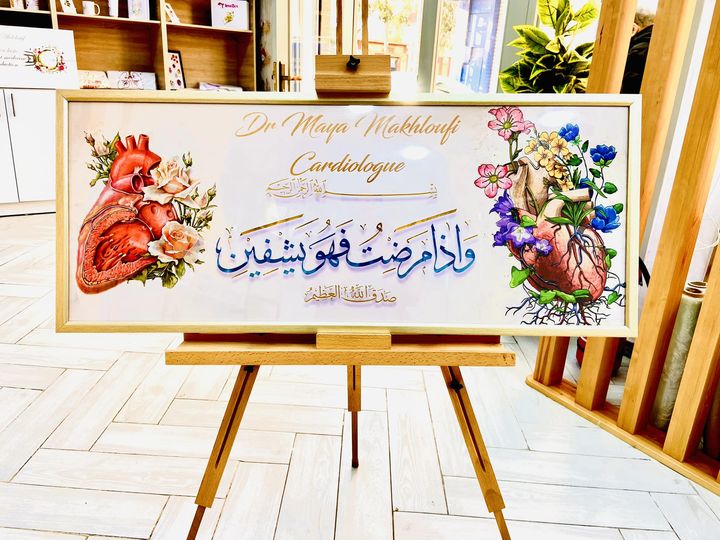 Dr Maya Makhloufi
Cardiologue
بسم الله الرحمن الرحيم
وَإِذَا مَرِضْتُ فَهُوَ يَشْفِينِ
صدق الله العظيم